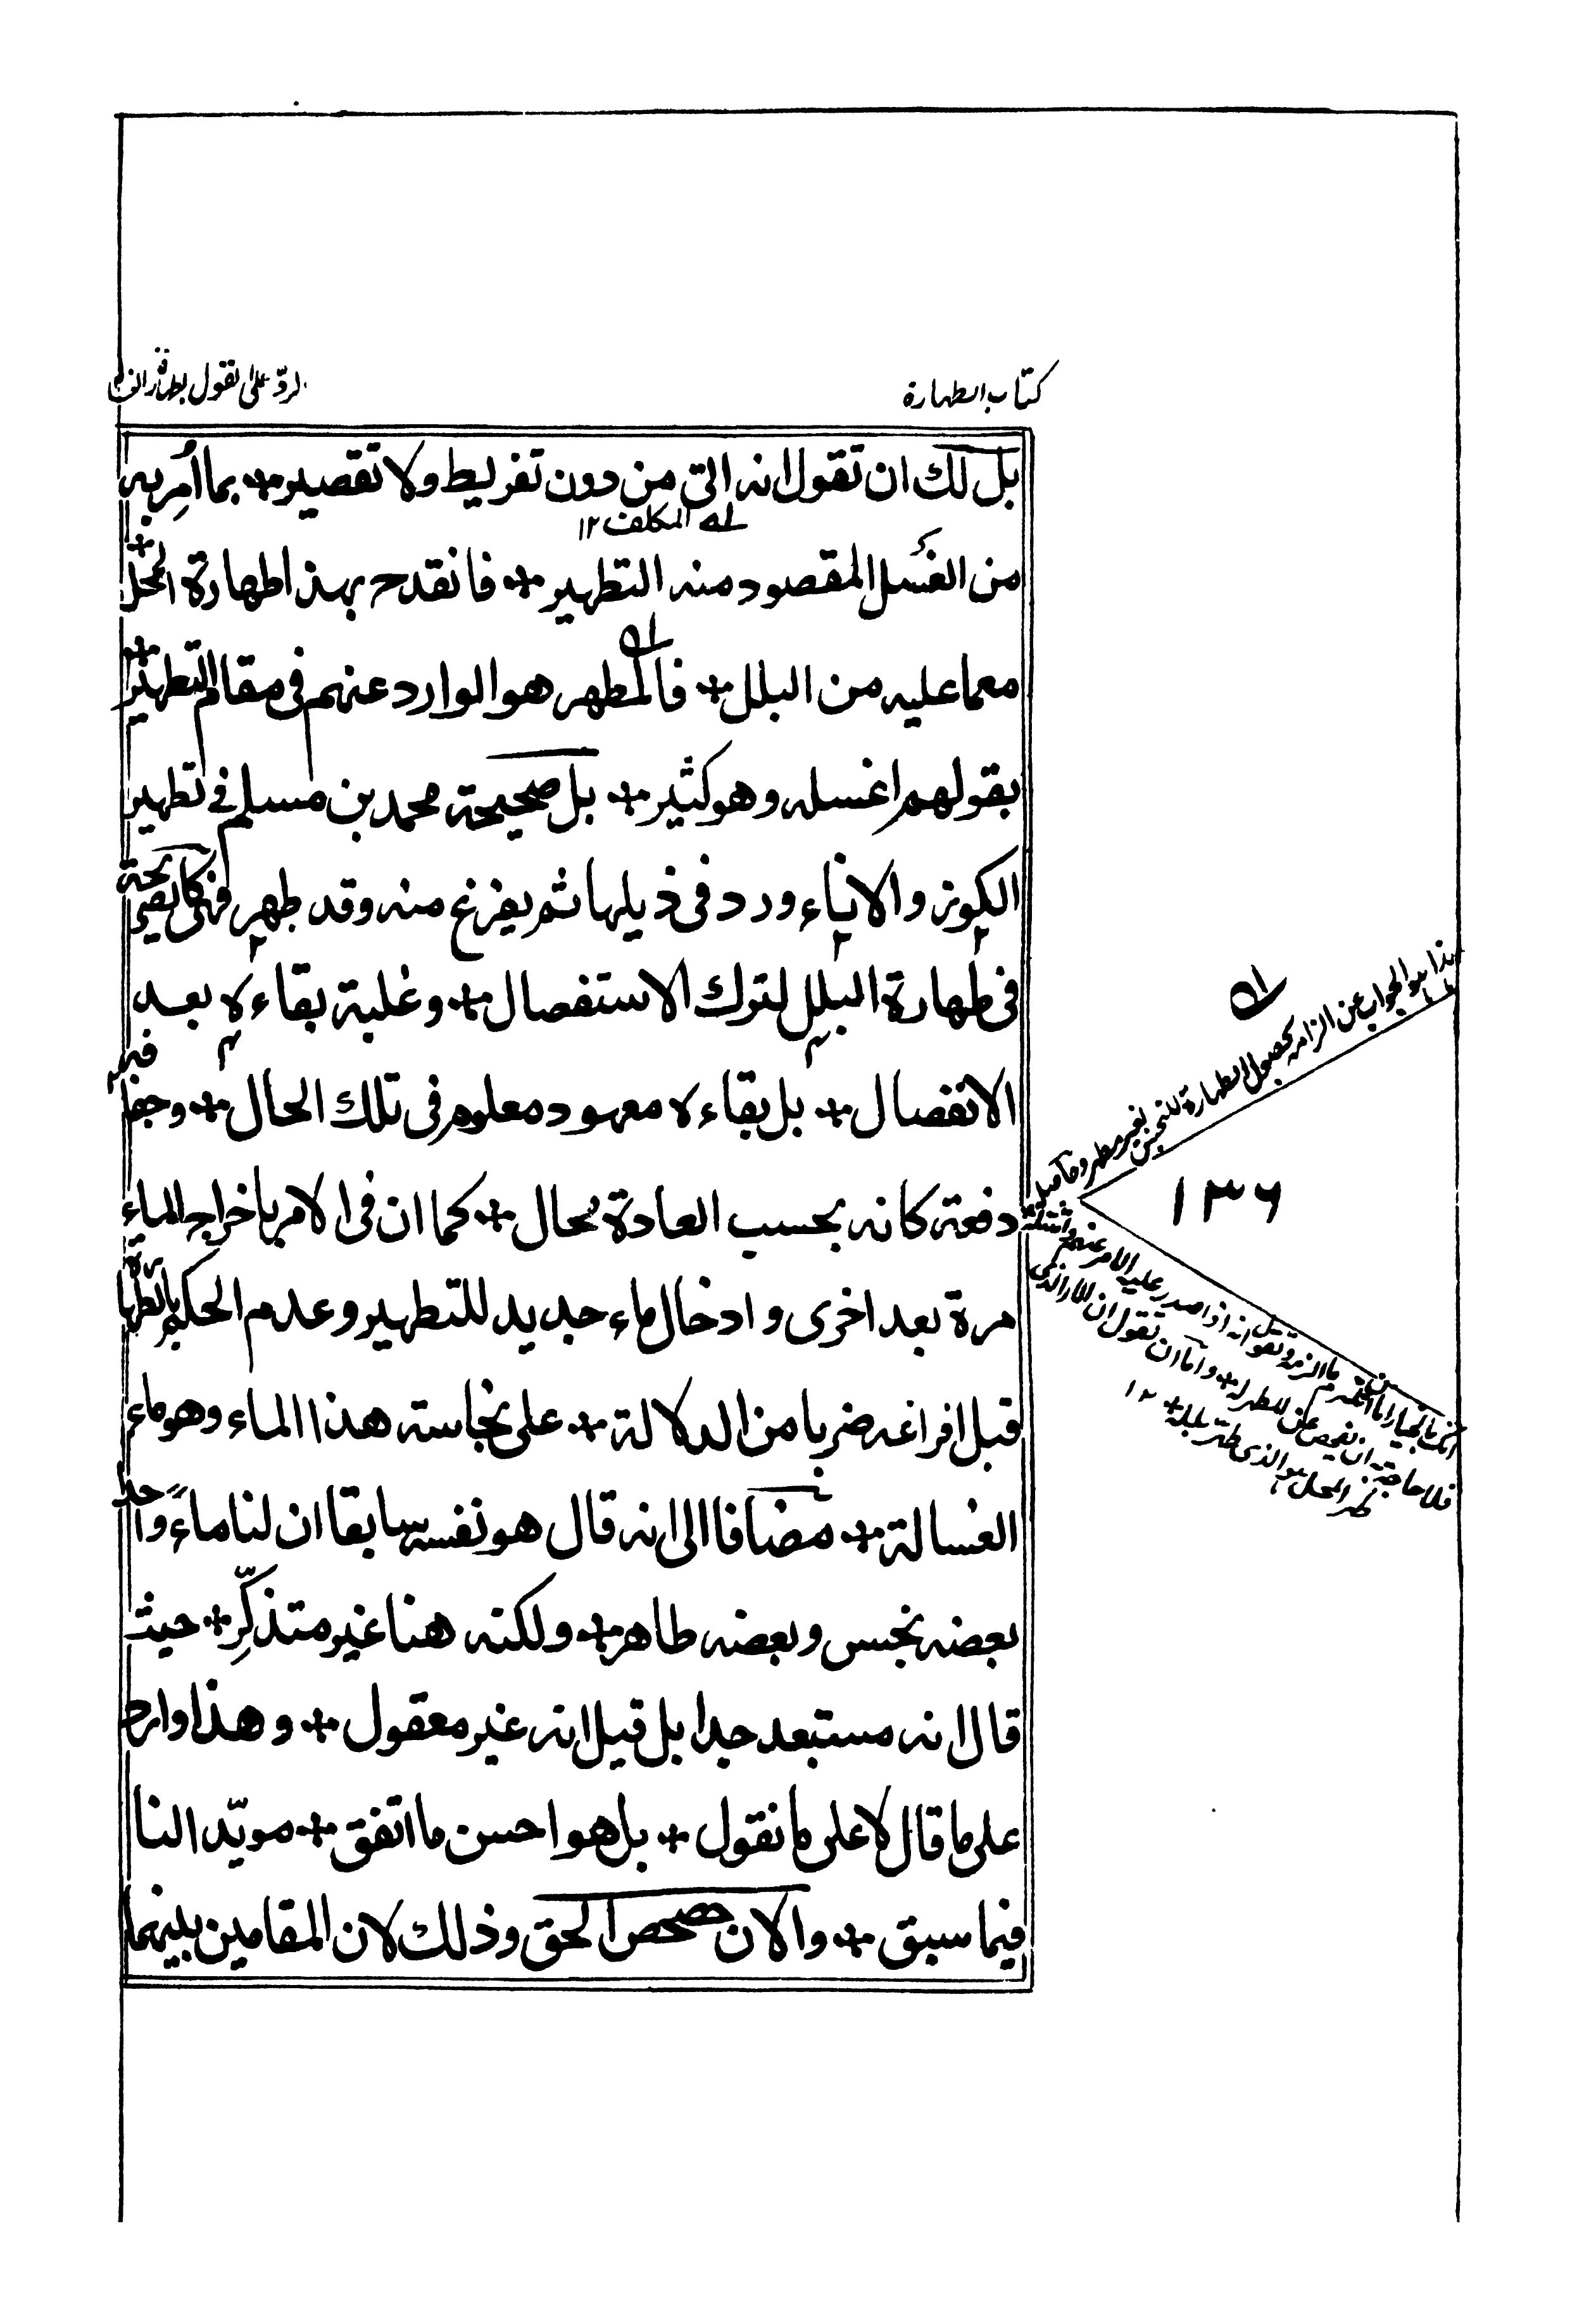 كتاب الطهارة
الردّ على القول بطهارة
بل لك ان تقول انه اتى من دون تفريط ولا تقصير + بما اُمِر به
اے المكلف ١٢
من الغَسل المقصود منه التطهير + فانقدح بهذا طهارة المحل +
معما عليه من البلل + فالمطهر هو الوارد عنهم فى مقام التطهير +
بقولهم اغسله وهو كثير + بل صحيحة محمد بن مسلم فى تطهير
الكوز والاناء ورد فى ذيلها ثم يفرغ منه وقد طهر فهى كالصريحة
فى طهارة البلل لترك الاستفصال + وغلبة بقاءه بعد
الانفصال + بل بقاءه معهود معلوم فى تلك الحال + وجفافه
دفعة كانه بحسب العادة محال + كما ان فى الامر باخراج الماء
مرة بعد اخرى وادخال ماء جديد للتطهير وعدم الحكم بالطهارة
قبل افراغه ضربا من الدلالة + على نجاسة هذا الماء وهو ماء
الغسالة + مضافا الى انه قال هو نفسه سابقا ان لنا ماءً واحدا
بعضه نجس وبعضه طاهر + ولكنه هنا غير متذكّر + حيث
قال انه مستبعد جدا بل قيل انه غير معقول + وهذا وارد
على ما قال لا على ما نقول + بل هو احسن ما اتفق + مويّد النا
فيما سبق + والان حصحص الحق وذلك لان المقامين بينهما
هذا هو الجواب عن الزامه بحصول الطهارة للنجس بغير مطهر
١٣٦
ما الزم وهو انه اذا صدر عليه الامر عنهم
فلا حاجة ان نفحص عن المطهر له + واما ان نقول ان الماء الذى
طهر المحل هو الذى طهر بلله + ١٢